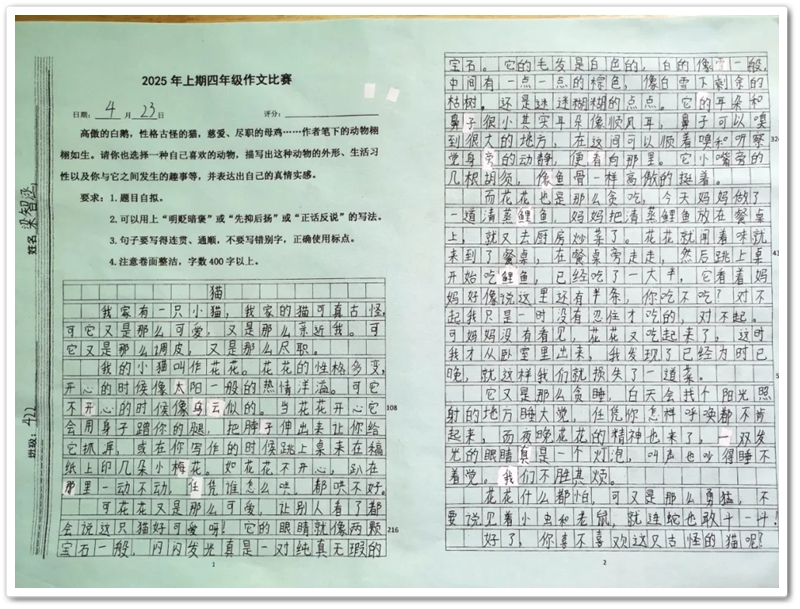 2025年上期四年级作文比赛
日期：4月23日 评分：
高傲的白鹅，性格古怪的猫，慈爱、尽职的母鸡……作者笔下的动物栩
栩如生。请你也选择一种自己喜欢的动物，描写出这种动物的外形、生活习
性以及你与它之间发生的趣事等，并表达出自己的真情实感。
要求：1.题目自拟。
2.可以用上“明贬暗褒”或“先抑后扬”或“正话反说”的写法。
3.句子要写得连贯、通顺，不要写错别字，正确使用标点。
4.注意卷面整洁，字数400字以上。
姓名 梁智涵
班级：422
猫
我家有一只小猫，我家的猫可真古怪，
可它又是那么可爱，又是那么亲近我。可
它又是那么调皮，又是那么尽职。
我的小猫叫作花花。花花的性格多变，
开心的时候像太阳一般的热情洋溢。可它
不开心的时候像乌云似的。当花花开心它 108
会用身子蹭你的腿，把脖子伸出来让你给
它抓痒，或在你写作的时候跳上桌来在稿
纸上印几朵小梅花。如花花不开心，趴在
那里一动不动，任凭谁怎么哄，都哄不好。
可花花又是那么可爱，让别人看了都
会说这只猫好可爱呀！它的眼睛就像两颗 216
宝石一般，闪闪发光真是一对纯真无瑕的
1
宝石。它的毛发是白色的，白的像雪一般，
中间有一点一点的棕色，像白雪下剩余的
枯树。还是迷迷糊糊的点点。它的耳朵和
鼻子很小其实耳朵像顺风耳，鼻子可以嗅
到很大的地方，在这间可以顺着嗅和听察
觉身旁的动静，便看向那里。它小嘴旁的
几根胡须，像鱼骨一样高傲的挺着。
而花花也是那么贪吃，今天妈妈做了
一道清蒸鲤鱼，妈妈把清蒸鲤鱼放在餐桌
上，就又去厨房炒菜了。花花就闻着味就
来到了餐桌，在餐桌旁走走，然后跳上桌
开始吃鲤鱼，已经吃了一大半，它看着妈
妈好像说这里还有半条，你吃不吃？对不
起我只是一时没有忍住才吃的，对不起。
可妈妈没有看见，花花又吃起来了，这时
我才从卧室里出来，我发现了已经为时已
晚，就这样我们就损失了一道菜。
它又是那么贪睡，白天会找个阳光照
射的地方睡大觉，任凭你怎样呼唤都不肯
起来，而夜晚花花的精神也来了，一双发
光的眼睛真是一个灯泡，叫声也吵得睡不
着觉。我们不胜其烦。
花花什么都怕，可又是那么勇猛，不
要说见着小虫和老鼠，就连蛇也敢斗一斗！
好了，你喜不喜欢这只古怪的猫呢？
2